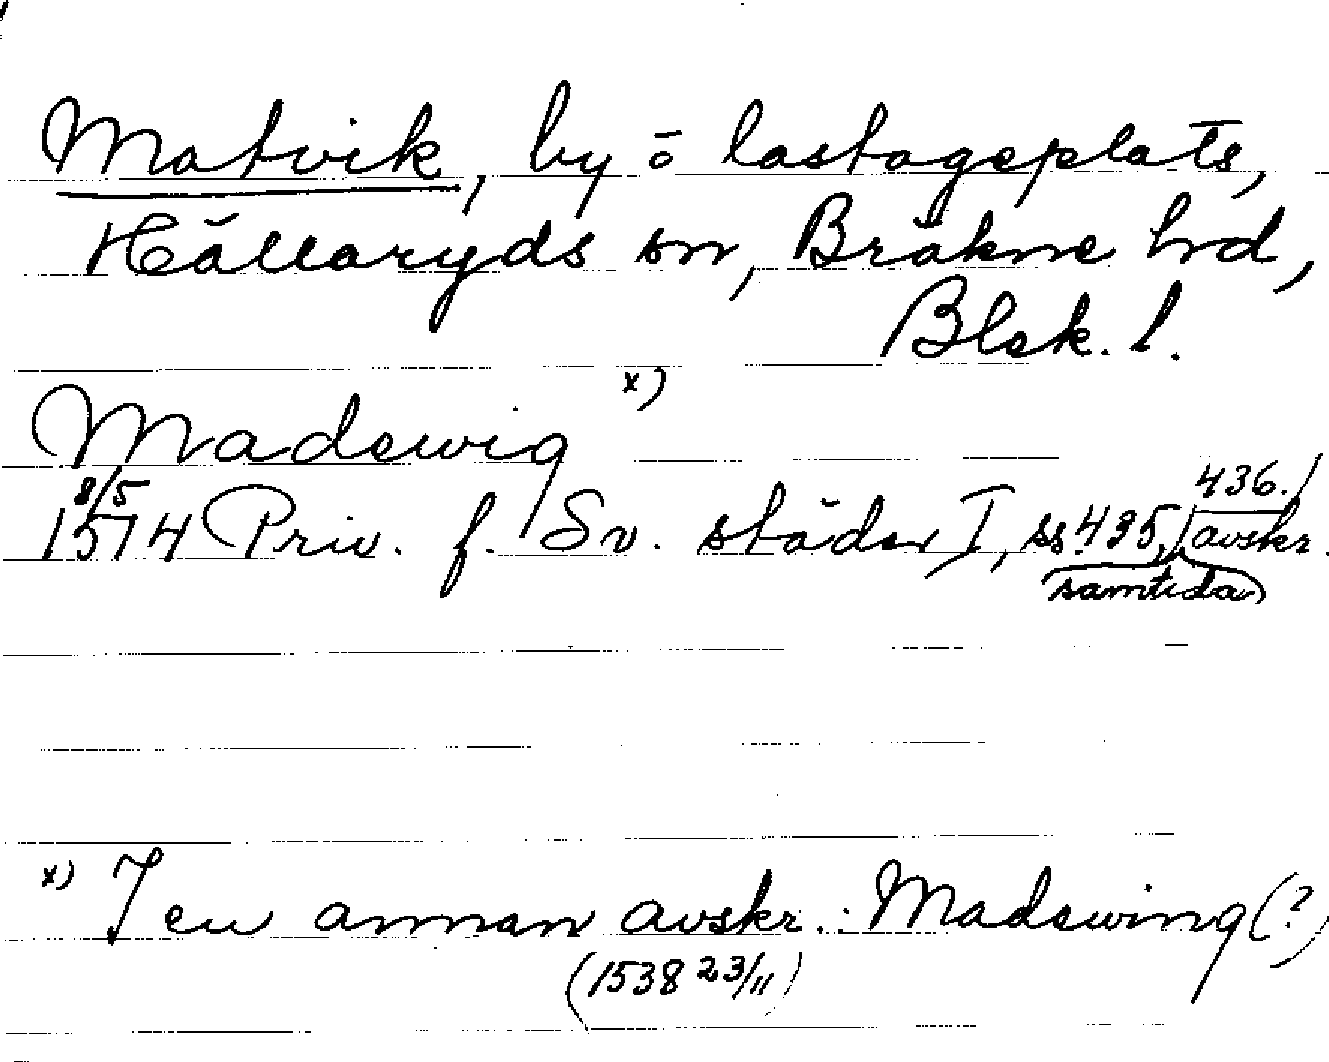 Matvik, by o lastageplats,
Hällaryds sn, Bräkne hd,
Blek. l.
Madewig x)
8/5
1514 Priv. f. Sv. städer I, ss. 435, 436. / avskr.
samtida
x) I en annan avskr.: Madewing (?)
(1538 23/11)